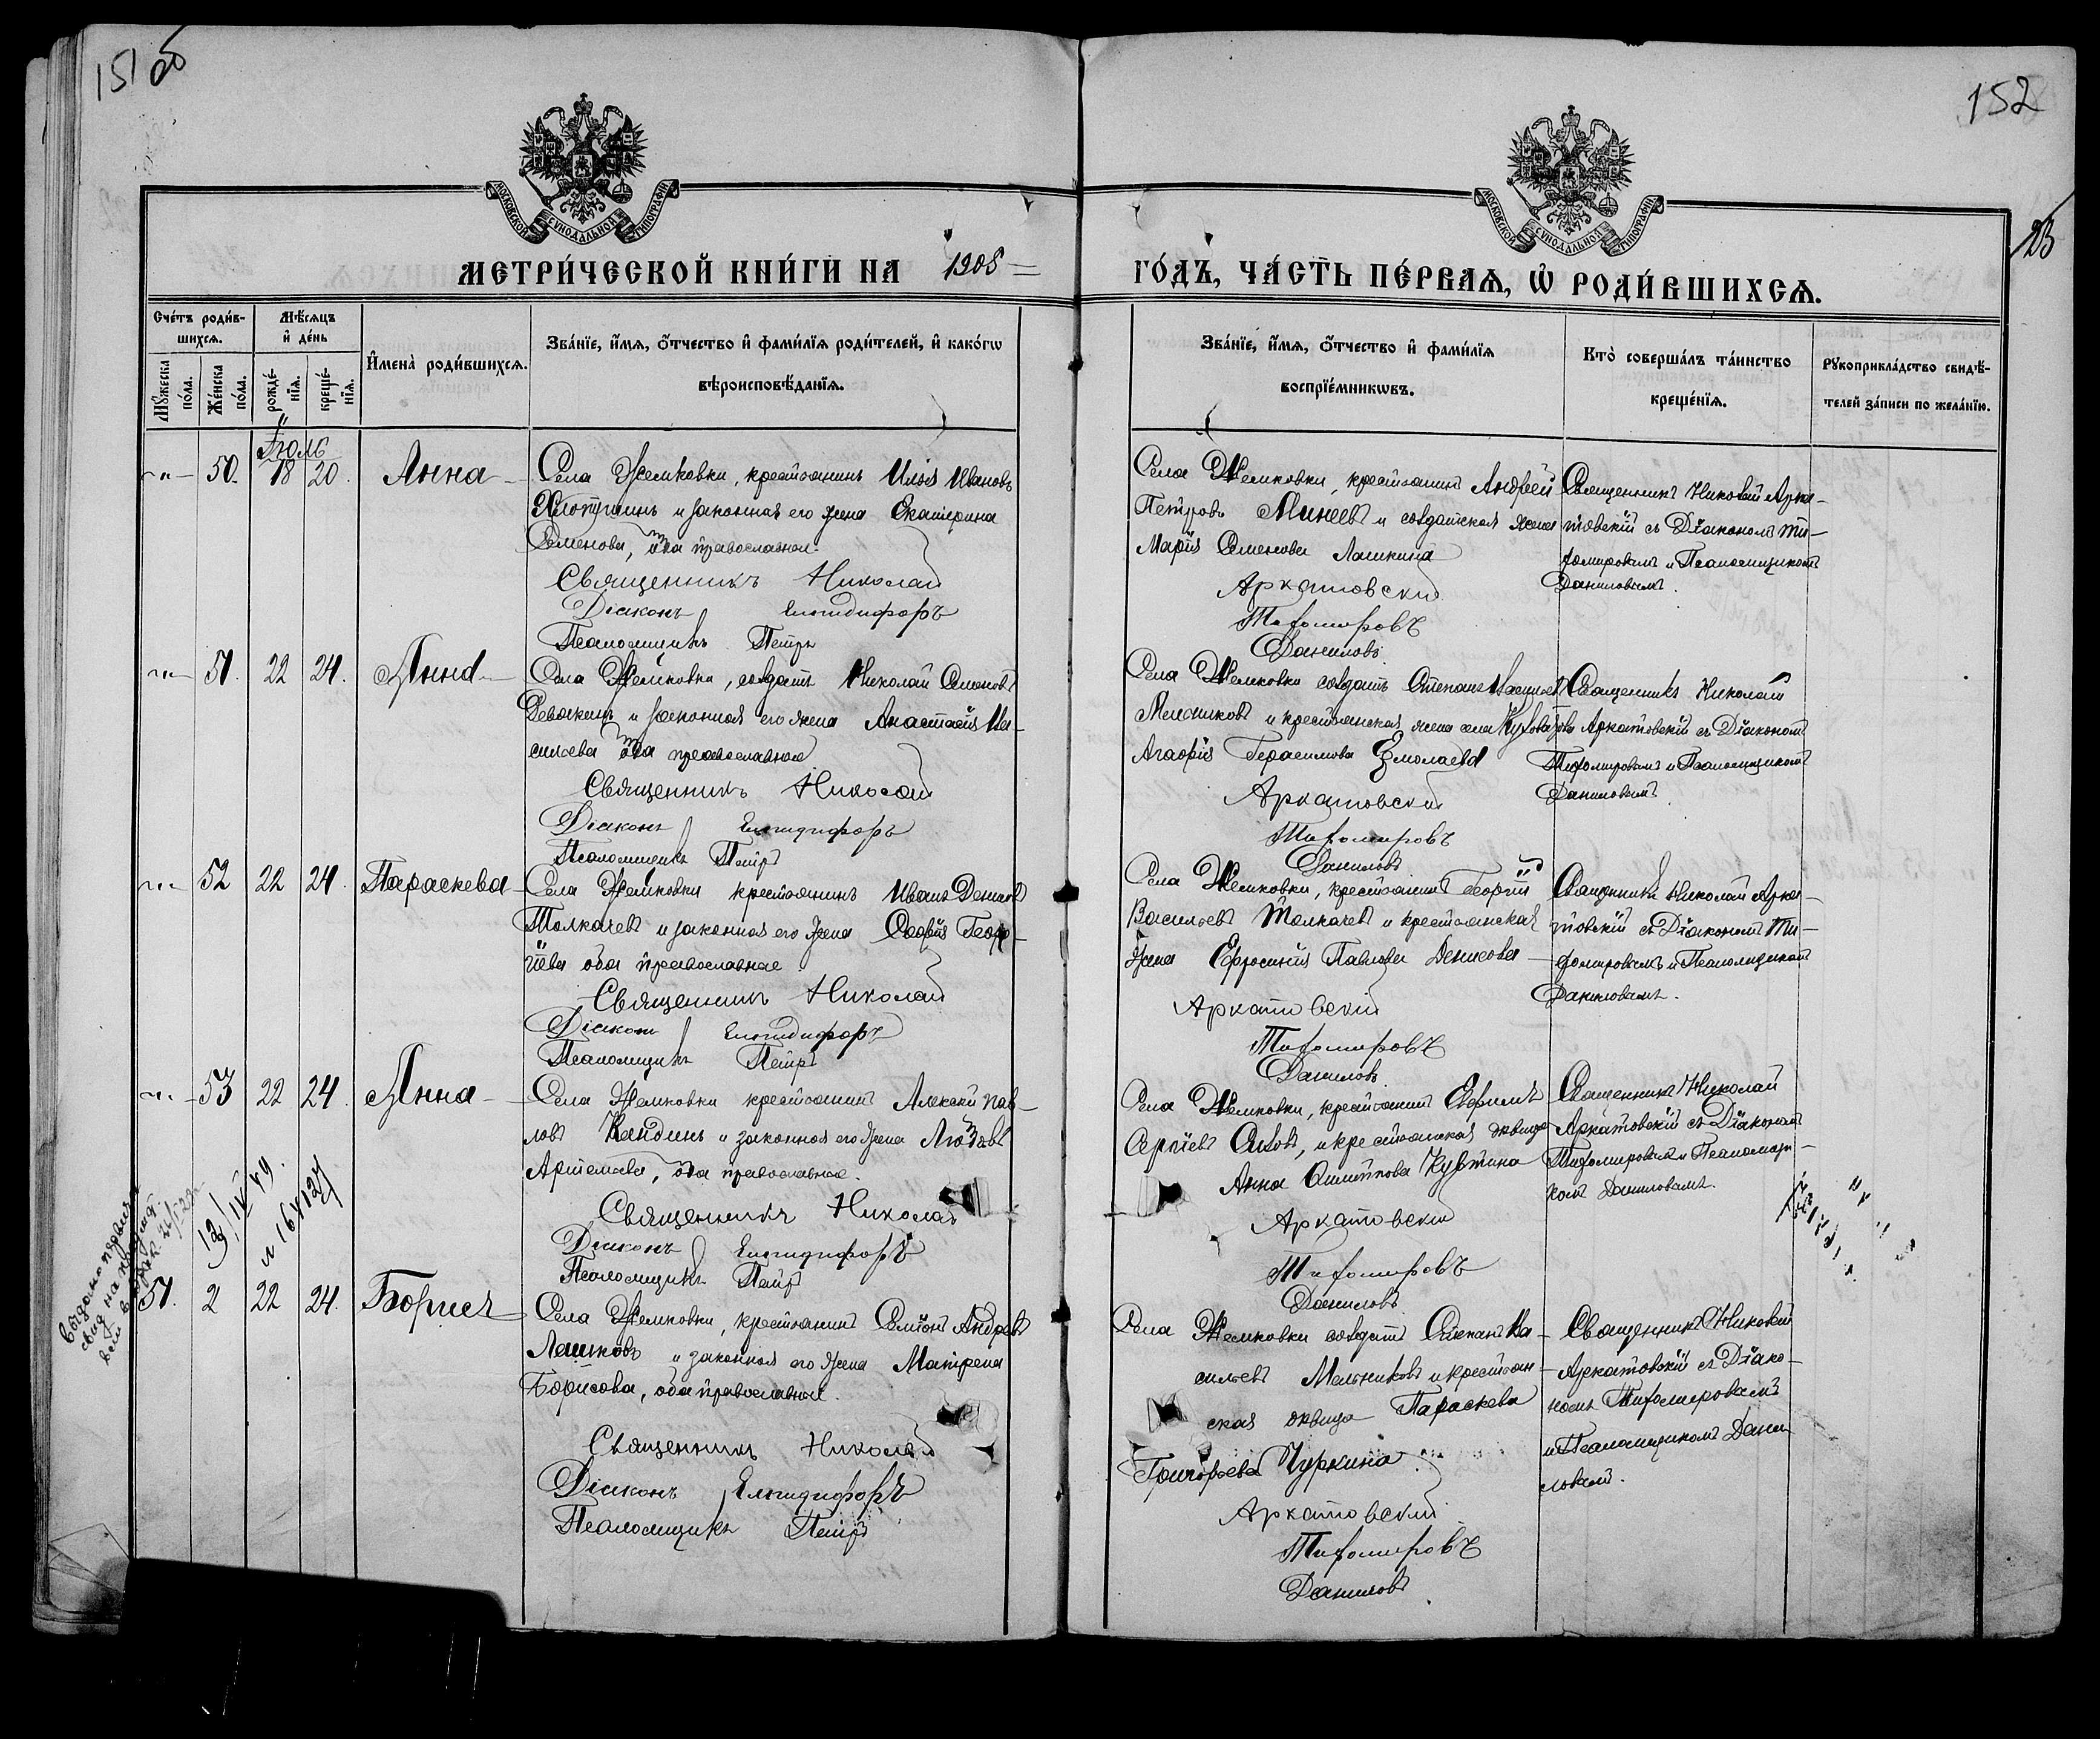 151 об
152
МОСКОВСКОЙ СѴНОДАЛЬНОЙ ТИПОГРАФІИ
МОСКОВСКОЙ СѴНОДАЛЬНОЙ ТИПОГРАФІИ
МЕТРИ́ЧЕСКОЙ КНИ́ГИ НА 1908
ГО́ДЪ, ЧА́СТЬ ПЕ́РВАѦ, Ѡ҆ РОДИ́ВШИХСѦ.
Сче́тъ роди́в-
шихсѧ.
Мѣ́сѧцъ
и҆ де́нь
Мꙋ́жеска
по́ла.
Же́нска
по́ла.
рожде́-
нїѧ.
креще́-
нїѧ.
И҆мена̀ роди́вшихсѧ.
Зва́нїе, и҆́мѧ, ѻ҆́тчество и҆ фами́лїѧ роди́телей, и҆ како́гѡ
вѣроисповѣ́данїѧ.
Зва́нїе, и҆́мѧ, ѻ҆́тчество и҆ фами́лїѧ
воспрїе́мникѡвъ.
Кто̀ соверша́лъ та́инство
креще́нїѧ.
Рꙋкоприкла́дство свидѣ́-
телей за́писи по жела́нїю.
Іюль
50. 18 20. Анна
Села Жемковки, крестьянинъ Илья Ивановъ
и законная его жена Екатерина
Семенова, оба православные.
Священникъ Николай
Діаконъ Елпидифоръ
Псаломщикъ Петръ
Села Жемковки, крестьянинъ Андрей
Петровъ Минеевъ и солдатская жена
Марія Семенова Лашкина
Аркатовскій
Тихомировъ
Даниловъ
Священникъ Николай Арка-
товскій съ Діакономъ Ти-
хомировымъ и Псаломщикомъ
Даниловымъ.
51. 22 24. Анна
Села Жемковки, солдатъ Николай Семеновъ
Девяткинъ и законная его жена Анастасія Ва-
сильева оба православные
Священникъ Николай
Діаконъ Елпидифоръ
Псаломщикъ Петръ
Села Жемковки солдатъ Степанъ Васильевъ
Мельниковъ и крестьянская жена села
Агафія Герасимова Ермолаева
Аркатовскій
Тихомировъ
Даниловъ
Священникъ Николай
Аркатовскій съ Діакономъ
Тихомировымъ и Псаломщикомъ
Даниловымъ.
52 22 24. Параскева
Села Жемковки крестьянинъ Иванъ Денисовъ
Толкачевъ и законная его жена Софія Геор-
гіева оба православные
Священникъ Николай
Діаконъ Елпидифоръ
Псаломщикъ Петръ
Села Жемковки, крестьянинъ Георгій
Васильевъ Толкачевъ и крестьянская
жена Ефросинія Павлова Денисова
Аркатовскій
Тихомировъ
Даниловъ
Священникъ Николай Арка-
товскій съ Діакономъ Ти-
хомировымъ и Псаломщикомъ
Даниловымъ.
53 22 24. Анна
Села Жемковки крестьянинъ Алексѣй Пав-
ловъ Кандинъ и законная его жена Любовь
Артемьева, оба православные.
Священникъ Николай
Діаконъ Елпидифоръ
Псаломщикъ Петръ
Села Жемковки, крестьянинъ Ефимъ
Сергіевъ и крестьянская дѣвица
Анна
Аркатовскій
Тихомировъ
Даниловъ
Священникъ Николай
Аркатовскій съ Діакономъ
Тихомировымъ и Псаломщи-
комъ Даниловымъ.
51. 2 22 24. Борисъ
Села Жемковки, крестьянинъ Семіонъ Андреевъ
Лашковъ и законная его жена Матрена
Борисова, оба православные.
Священникъ Николай
Діаконъ Елпидифоръ
Псаломщикъ Петръ
Села Жемковки солдатъ Степанъ Ва-
сильевъ Мельниковъ и крестьян-
ская дѣвица Параскева
Григорьева Чуркина
Аркатовскій
Тихомировъ
Даниловъ
Священникъ Николай
Аркатовскій съ Діако-
номъ Тихомировымъ
и Псаломщикомъ Дани-
ловымъ.